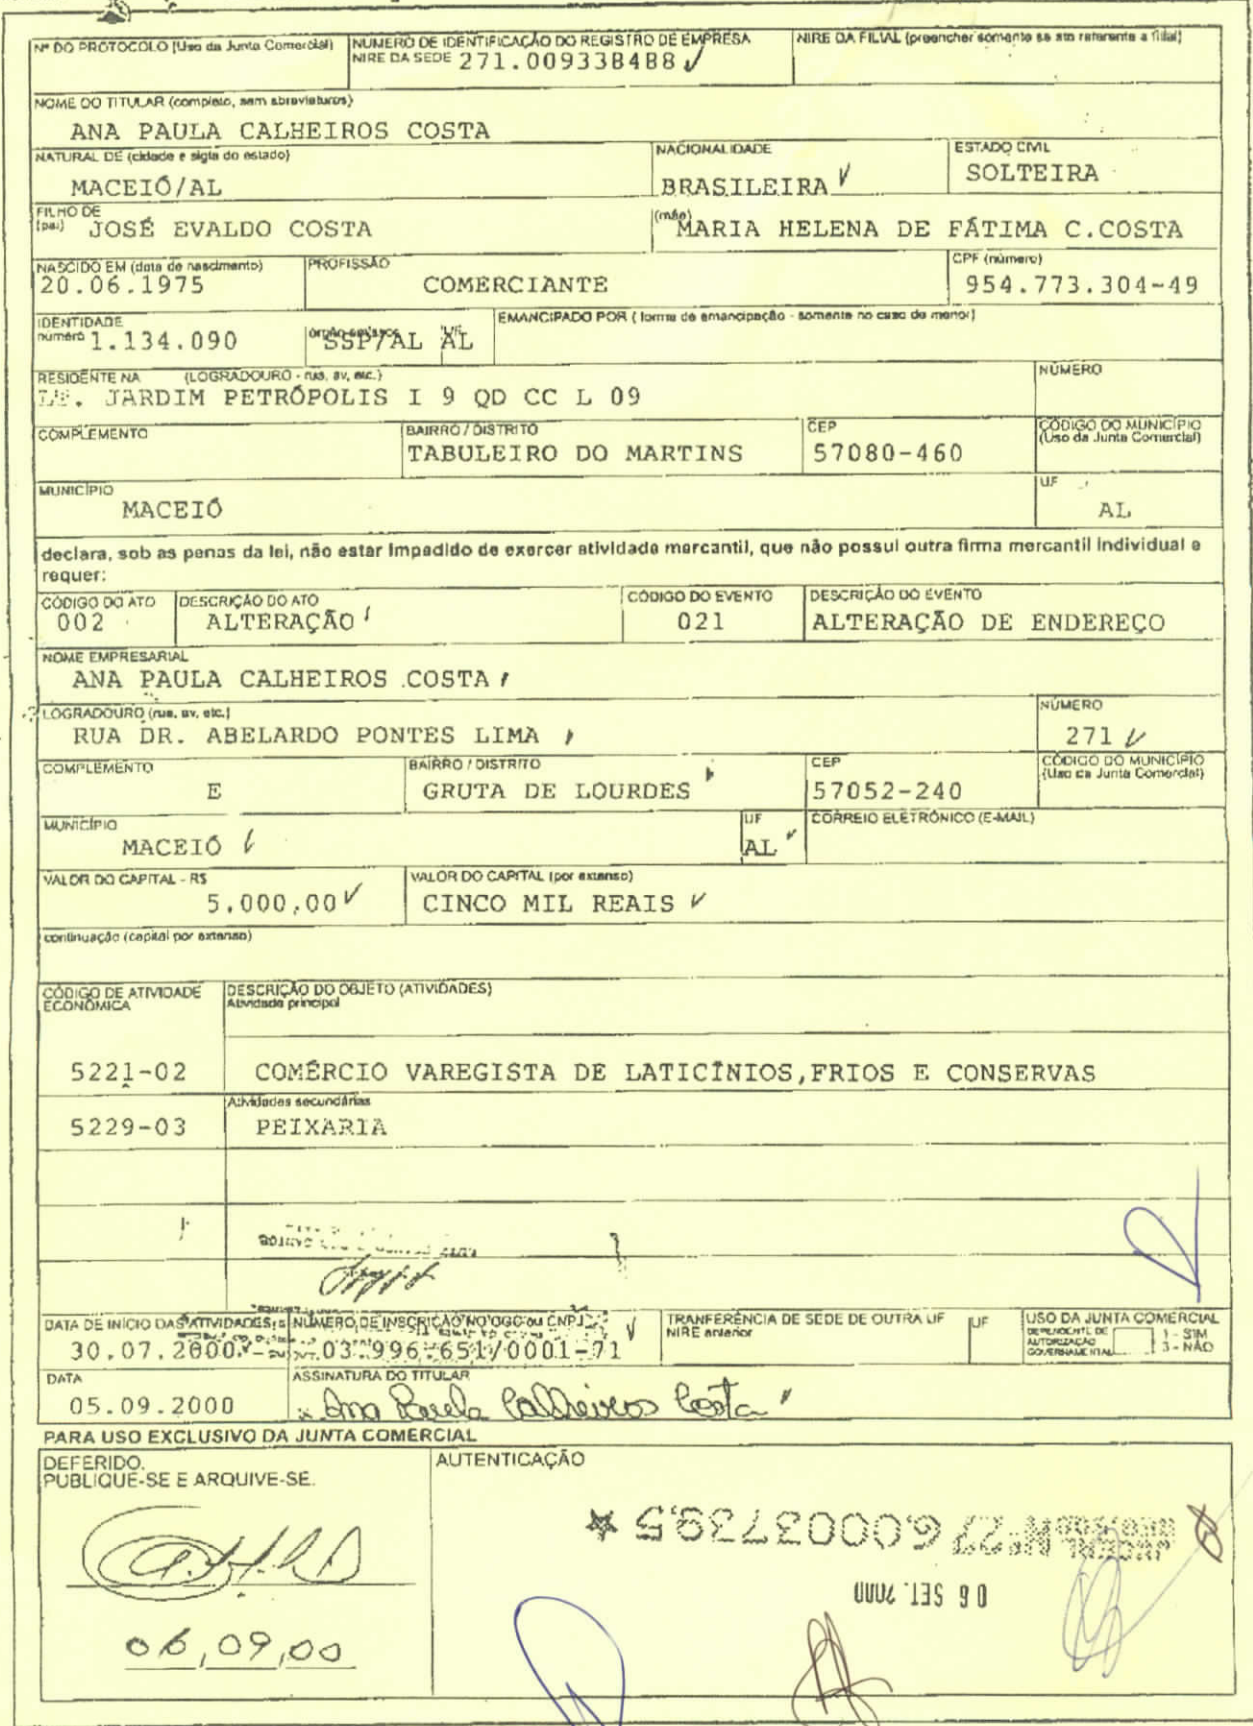 Nº DO PROTOCOLO (Uso da Junta Comercial)
NUMERO DE IDENTIFICAÇÃO DO REGISTRO DE EMPRESA
NIRE DA SEDE 271.009338488
NIRE DA FILIAL (preencher somente se ato referente a filial)
NOME DO TITULAR (completo, sem abreviaturas)
ANA PAULA CALHEIROS COSTA
NATURAL DE (cidade e sigla do estado)
MACEIÓ/AL
NACIONALIDADE
BRASILEIRA
ESTADO CIVIL
SOLTEIRA
FILHO DE
(pai) JOSÉ EVALDO COSTA
(mãe) MARIA HELENA DE FÁTIMA C.COSTA
NASCIDO EM (data de nascimento)
20.06.1975
PROFISSÃO
COMERCIANTE
CPF (número)
954.773.304-49
IDENTIDADE
número 1.134.090
SSP/AL
UF
AL
EMANCIPADO POR ( forma de emancipação - somente no caso de menor)
RESIDENTE NA (LOGRADOURO - rua, av, etc.)
JARDIM PETRÓPOLIS I 9 QD CC L 09
NÚMERO
COMPLEMENTO
BAIRRO / DISTRITO
TABULEIRO DO MARTINS
CEP
57080-460
CÓDIGO DO MUNICÍPIO
(Uso da Junta Comercial)
MUNICÍPIO
MACEIÓ
UF
AL
declara, sob as penas da lei, não estar impedido de exercer atividade mercantil, que não possui outra firma mercantil individual e
requer:
CÓDIGO DO ATO
002
DESCRIÇÃO DO ATO
ALTERAÇÃO
CÓDIGO DO EVENTO
021
DESCRIÇÃO DO EVENTO
ALTERAÇÃO DE ENDEREÇO
NOME EMPRESARIAL
ANA PAULA CALHEIROS COSTA
LOGRADOURO (rua, av, etc.)
RUA DR. ABELARDO PONTES LIMA
NÚMERO
271
COMPLEMENTO
E
BAIRRO / DISTRITO
GRUTA DE LOURDES
CEP
57052-240
CÓDIGO DO MUNICÍPIO
(Uso da Junta Comercial)
MUNICÍPIO
MACEIÓ
UF
AL
CORREIO ELETRÔNICO (E-MAIL)
VALOR DO CAPITAL - R$
5.000,00
VALOR DO CAPITAL (por extenso)
CINCO MIL REAIS
continuação (capital por extenso)
CÓDIGO DE ATIVIDADE
ECONÔMICA
DESCRIÇÃO DO OBJETO (ATIVIDADES)
Atividade principal
5221-02
COMÉRCIO VAREGISTA DE LATICÍNIOS,FRIOS E CONSERVAS
Atividades secundárias
5229-03
PEIXARIA
DATA DE INÍCIO DAS ATIVIDADES
30.07.2000
NÚMERO DE INSCRIÇÃO NO CGC ou CNPJ
03.996.651/0001-71
TRANFERÊNCIA DE SEDE DE OUTRA UF
NIRE anterior
UF
USO DA JUNTA COMERCIAL
DEPENDENTE DE
AUTORIZAÇÃO
GOVERNAMENTAL
1 - SIM
3 - NÃO
DATA
05.09.2000
ASSINATURA DO TITULAR
Ana Paula Calheiros Costa
PARA USO EXCLUSIVO DA JUNTA COMERCIAL
DEFERIDO.
PUBLIQUE-SE E ARQUIVE-SE.
06,09,00
AUTENTICAÇÃO
06 SET. 2000